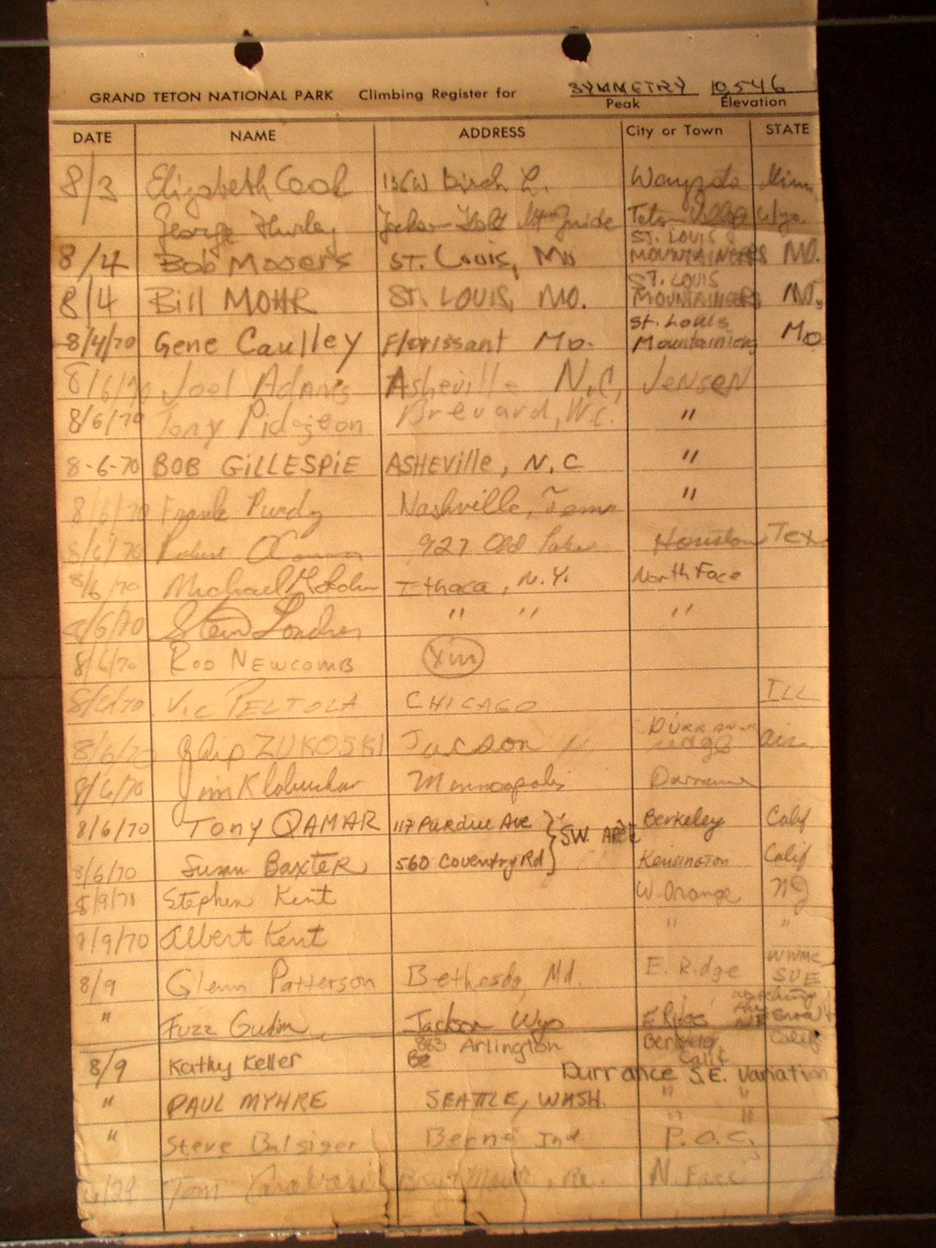 GRAND TETON NATIONAL PARK Climbing Register for SYMMETRY 10,546
Peak Elevation
DATE NAME ADDRESS City or Town STATE
8/3 Elizabeth Cook 136W Birch L. Wayzata Minn
George Hurley Jackson Hole Mt Guide Teton Village Wyo.
8/4 Bob Mosers ST. Louis, Mo ST. LOUIS MOUNTAINEERS MO.
8/4 Bill MOHR ST. LOUIS, MO. ST. LOUIS MOUNTAINEERS MO.
8/4/70 Gene Caulley Florissant Mo. St. Louis Mountainiers Mo
8/6/70 Joel Adams Asheville N.C, JENSEN
8/6/70 Tony Pidgeon Brevard, N.C. "
8-6-70 BOB GiLLESPiE ASHEVille, N.C "
8/6/70 Frank Purdy Nashville, Tenn "
8/6/70 Robert O'Connor 927 Old Lake Houston Tex
8/6/70 Michael Ithaca, N.Y. North Face
8/6/70 Steve " " "
8/6/70 ROD NEWCOMB XM
8/6/70 VIC PELTOLA CHICAGO ILL
8/6/70 ZUKOSKI Jacson " DURRANCE ridge
8/6/70 Jim Klobuchar Minneapolis Durrance
8/6/70 TONY QAMAR 117 Purdue Ave SW Berkeley Calif
8/6/70 Susan BAXTER 560 Coventry Rd Kensington Calif
8/9/70 Stephen Kent W. Orange NJ
8/9/70 Albert Kent " "
8/9 Glenn Patterson Bethesda, Md. E. Ridge WWMC SUE
" Fuzz Jackson Wyo E Ridge watching the
8/9 Kathy Keller 883 Arlington Berkeley, Calif Calif
Be Durrance S.E. Variation
" PAUL MYHRE SEATTLE, WASH. " "
" Steve Balsiger Berne Ind P.O.C.
" "
6/29 Tom Bryn Mawr, Pa. N. Face